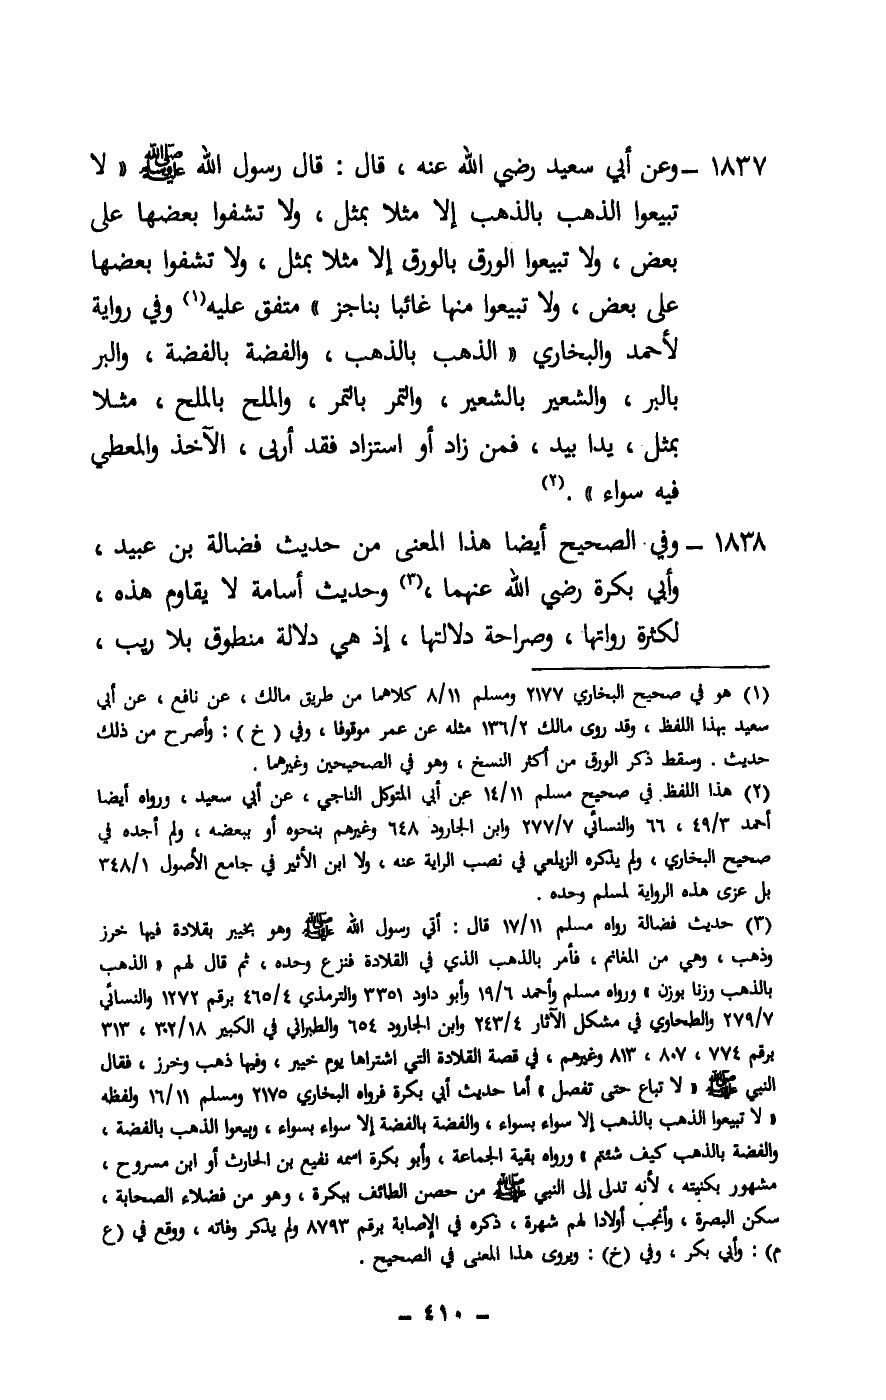 ١٨٣٧ – وعن أبي سعيد رضي الله عنه ، قال : قال رسول الله ﷺ « لا
تبيعوا الذهب بالذهب إلا مثلا بمثل ، ولا تشفوا بعضها على
بعض ، ولا تبيعوا الورق بالورق إلا مثلا بمثل ، ولا تشفوا بعضها
على بعض ، ولا تبيعوا منها غائبا بناجز » متفق عليه(١) وفي رواية
لأحمد والبخاري « الذهب بالذهب ، والفضة بالفضة ، والبر
بالبر ، والشعير بالشعير ، والتمر بالتمر ، والملح بالملح ، مثـلا
بمثل ، يدا بيد ، فمن زاد أو استزاد فقد أربى ، الآخذ والمعطي
فيه سواء » .(٢)
١٨٣٨ – وفي الصحيح أيضا هذا المعنى من حديث فضالة بن عبيد ،
وأبي بكرة رضي الله عنهما ،(٣) وحديث أسامة لا يقاوم هذه ،
لكثرة رواتها ، وصراحة دلالتها ، إذ هي دلالة منطوق بلا ريب ،
(١) هو في صحيح البخاري ٢١٧٧ ومسلم ٨/١١ كلاهما من طريق مالك ، عن نافع ، عن أبي
سعيد بهذا اللفظ ، وقد روى مالك ١٣٦/٢ مثله عن عمر موقوفا ، وفي ( خ ) : وأصرح من ذلك
حديث . وسقط ذكر الورق من أكثر النسخ ، وهو في الصحيحين وغيرهما .
(٢) هذا اللفظ في صحيح مسلم ١٤/١١ عن أبي المتوكل الناجي ، عن أبي سعيد ، ورواه أيضا
أحمد ٤٩/٣ ، ٦٦ والنسائي ٢٧٧/٧ وابن الجارود ٦٤٨ وغيرهم بنحوه أو ببعضه ، ولم أجده في
صحيح البخاري ، ولم يذكره الزيلعي في نصب الراية عنه ، ولا ابن الأثير في جامع الأصول ٣٤٨/١
بل عزى هذه الرواية لمسلم وحده .
(٣) حديث فضالة رواه مسلم ١٧/١١ قال : أتي رسول الله ﷺ وهو بخيبر بقلادة فيها خرز
وذهب ، وهي من المغانم ، فأمر بالذهب الذي في القلادة فنزع وحده ، ثم قال لهم « الذهب
بالذهب وزنا بوزن » ورواه مسلم وأحمد ١٩/٦ وأبو داود ٣٣٥١ والترمذي ٤٦٥/٤ برقم ١٢٧٢ والنسائي
٢٧٩/٧ والطحاوي في مشكل الآثار ٢٤٣/٤ وابن الجارود ٦٥٤ والطبراني في الكبير ٣٠٢/١٨ ، ٣١٣
برقم ٧٧٤ ، ٨٠٧ ، ٨١٣ وغيرهم ، في قصة القلادة التي اشتراها يوم خيبر ، وفيها ذهب وخرز ، فقال
النبي ﷺ « لا تباع حتى تفصل » أما حديث أبي بكرة فرواه البخاري ٢١٧٥ ومسلم ١٦/١١ ولفظه
« لا تبيعوا الذهب بالذهب إلا سواء بسواء ، والفضة بالفضة إلا سواء بسواء ، وبيعوا الذهب بالفضة ،
والفضة بالذهب كيف شئتم » ورواه بقية الجماعة ، وأبو بكرة اسمه نفيع بن الحارث أو ابن مسروح ،
مشهور بكنيته ، لأنه تدلى إلى النبي ﷺ من حصن الطائف ببكرة ، وهو من فضلاء الصحابة ،
سكن البصرة ، وأنجب أولادا لهم شهرة ، ذكره في الإصابة برقم ٨٧٩٣ ولم يذكر وفاته ، ووقع في (ع
م) : وأبي بكر ، وفي (خ) : ويروى هذا المعنى في الصحيح .
– ٤١٠ –